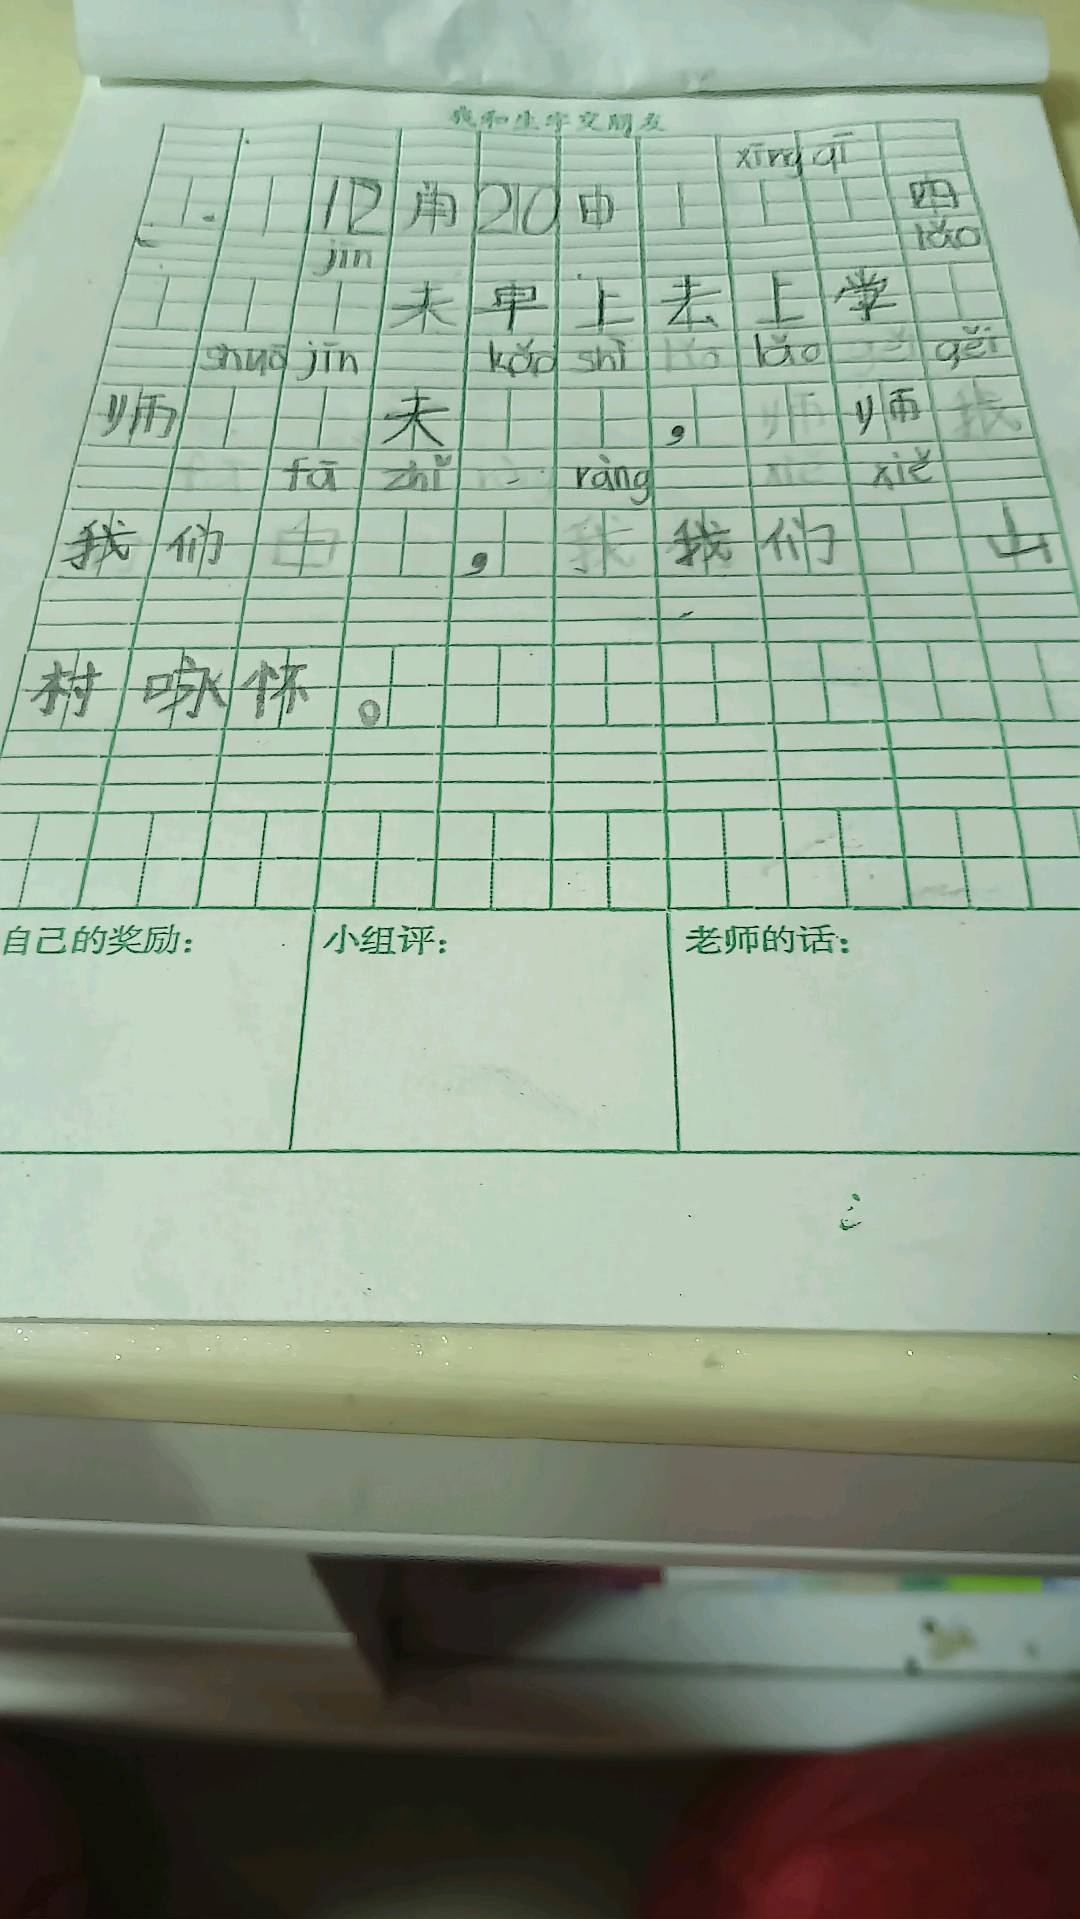 我和生字交朋友
xīng qī
12月20日 四
jīn lǎo
天早上去上学
shuō jīn kǎo shì lǎo gěi
师 天 ， 师
fā zhǐ ràng xiě
我们 ， 我们 山
村咏怀。
自己的奖励: 小组评: 老师的话: